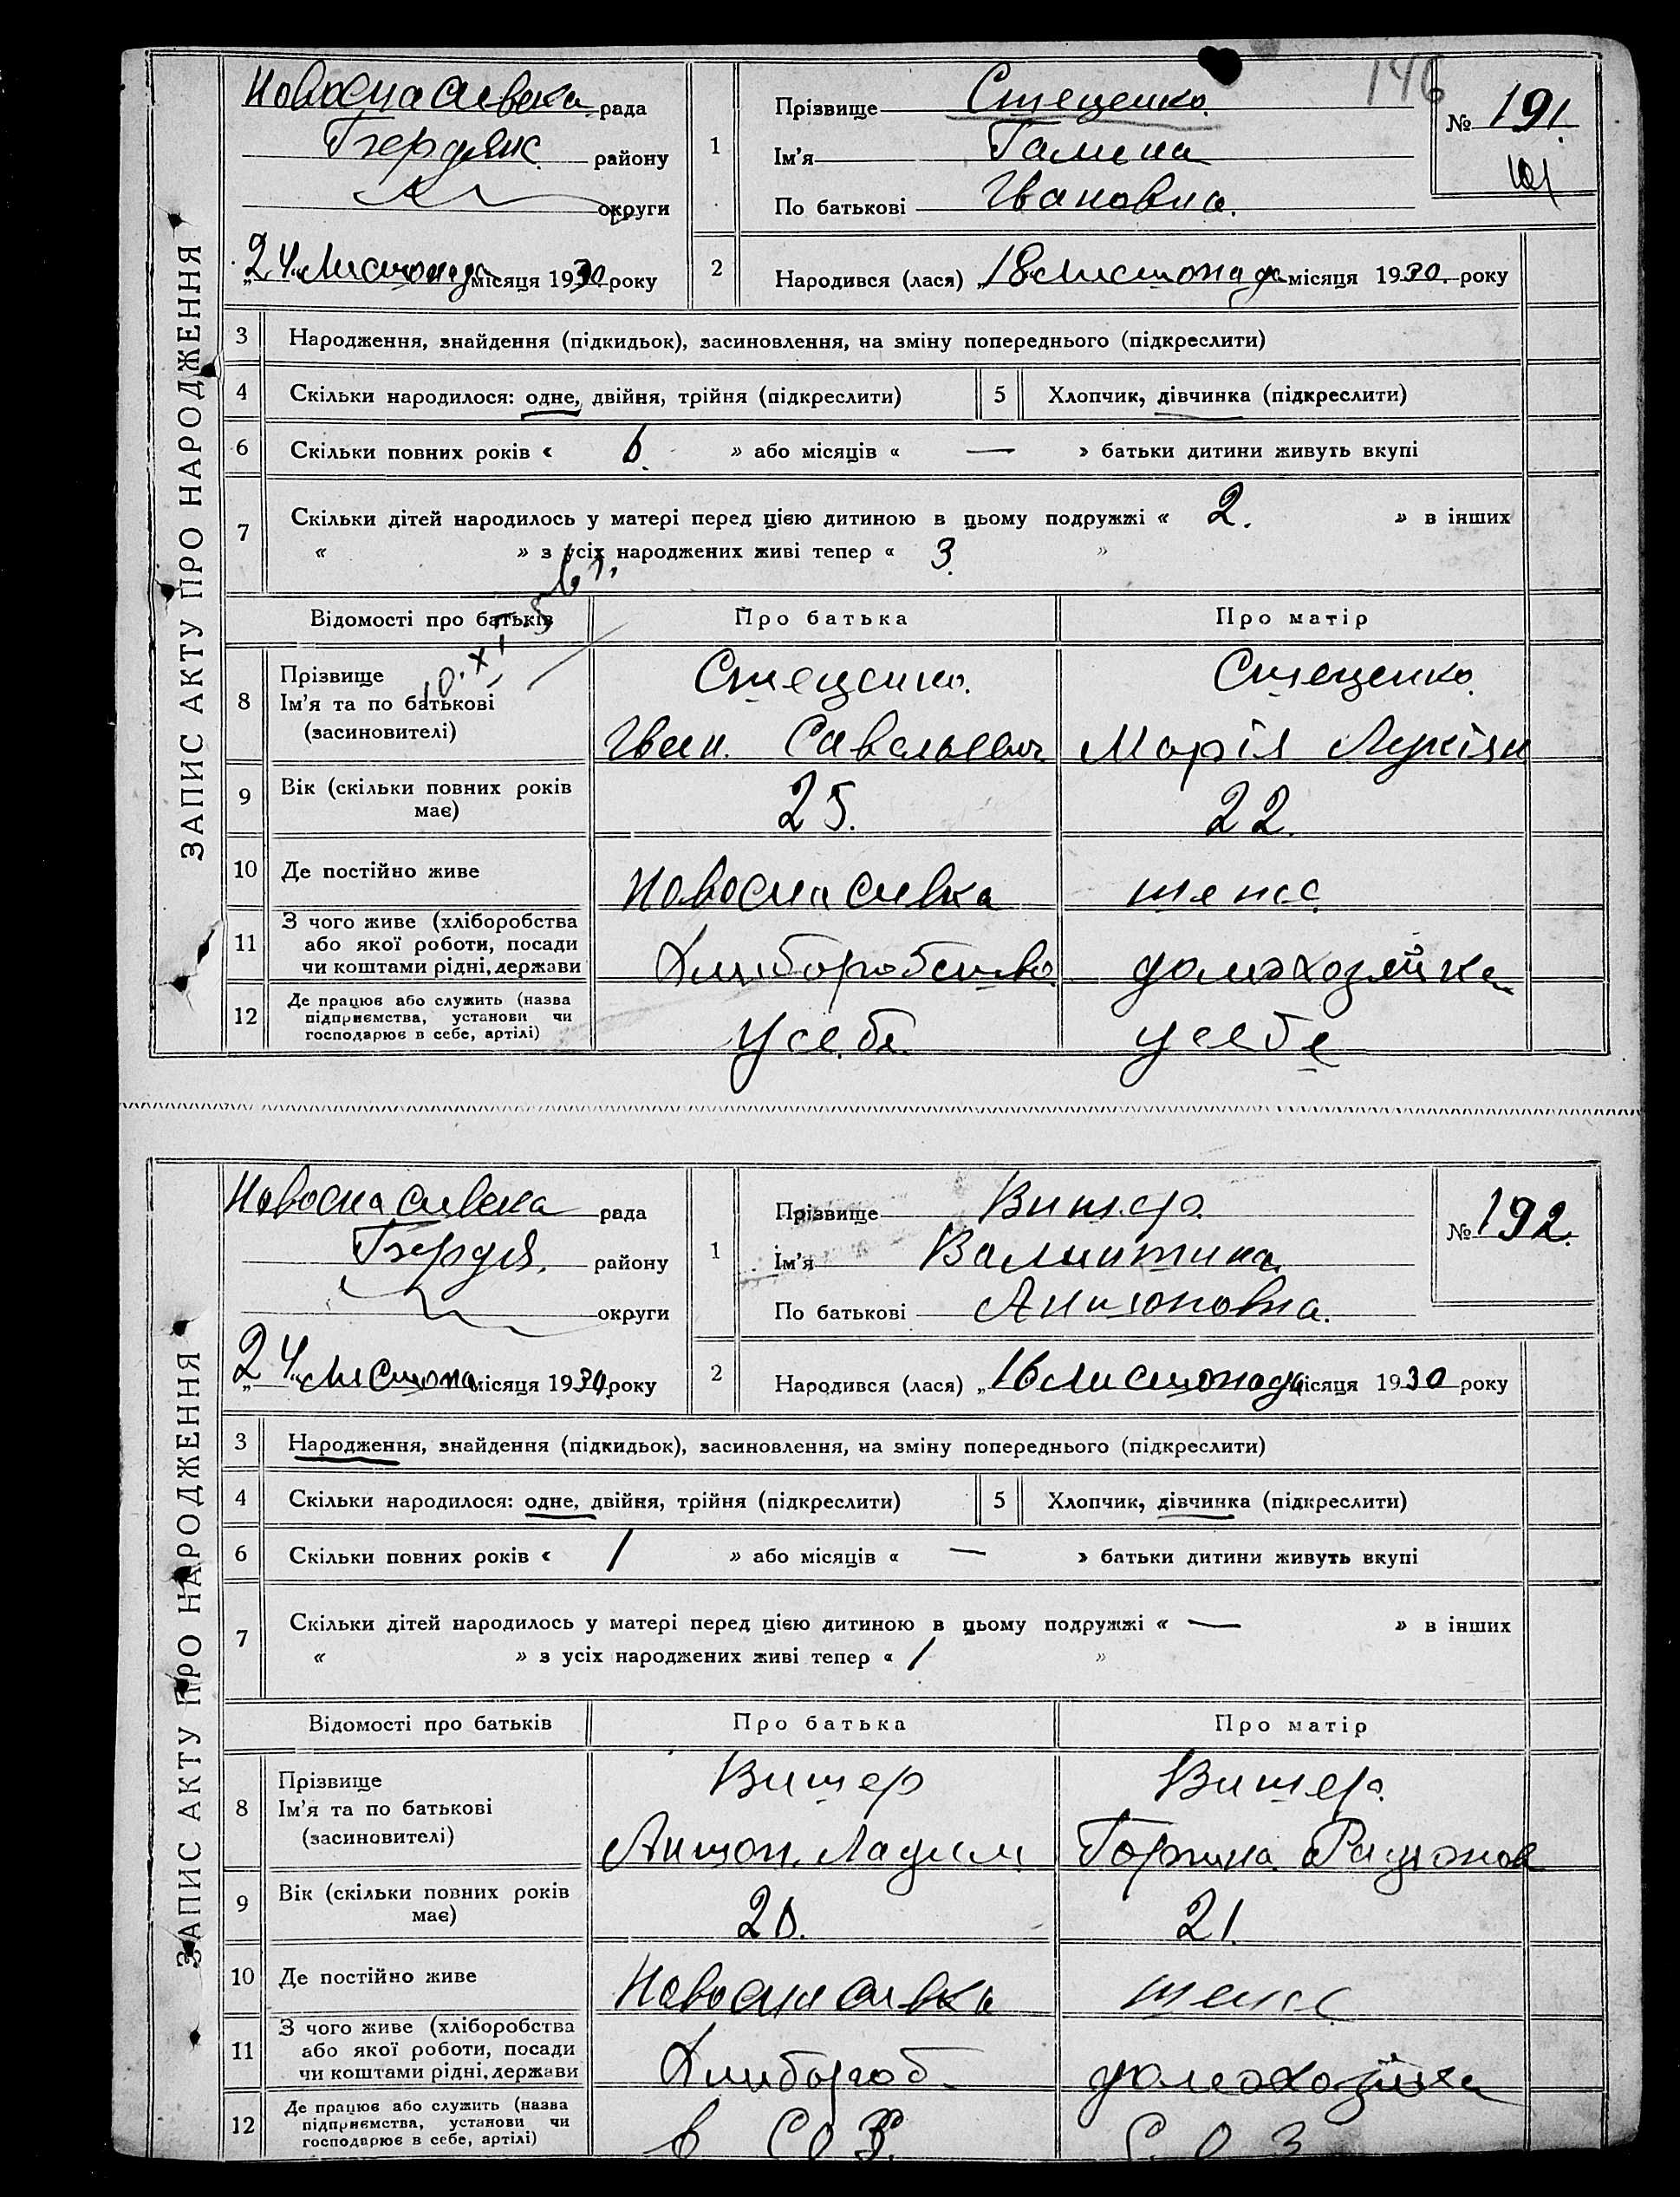 ЗАПИС АКТУ ПРО НАРОДЖЕННЯ
Новоспасивска рада
Бердянс району
округи
„24“ Листопада місяця 1930 року
146
1 Прізвище Стеценко
Ім'я Галина
По батькові Ивановна.
№ 191.
101
2 Народився (лася) „18“ листопада місяця 1930. року
3 Народження, знайдення (підкидьок), засиновлення, на зміну попереднього (підкреслити)
4 Скільки народилося: одне, двійня, трійня (підкреслити) 5 Хлопчик, дівчинка (підкреслити)
6 Скільки повних років « 6. » або місяців « — » батьки дитини живуть вкупі
7 Скільки дітей народилось у матері перед цією дитиною в цьому подружжі « 2. » в інших
« » з усіх народжених живі тепер « 3. »
Відомості про батьків Про батька Про матір
8 Прізвище Стеценко. Стеценко.
Ім'я та по батькові
(засиновителі) Иван. Савельевич Марія Лукіян
9 Вік (скільки повних років
має) 25. 22.
10 Де постійно живе Новоспасивка тепе
11 З чого живе (хліборобства
або якої роботи, посади
чи коштами рідні, держави Хлиборобство домохозяйка
12 Де працює або служить (назва
підприємства, установи чи
господарює в себе, артілі) у себе. у себе
ЗАПИС АКТУ ПРО НАРОДЖЕННЯ
Новоспасивска рада
Бердя. району
округи
„24“ Листопа місяця 1930 року
1 Прізвище Вишер.
Ім'я Валинтина
По батькові Антоновна.
№ 192.
2 Народився (лася) „16“ Листопада місяця 1930 року
3 Народження, знайдення (підкидьок), засиновлення, на зміну попереднього (підкреслити)
4 Скільки народилося: одне, двійня, трійня (підкреслити) 5 Хлопчик, дівчинка (підкреслити)
6 Скільки повних років « 1 » або місяців « — » батьки дитини живуть вкупі
7 Скільки дітей народилось у матері перед цією дитиною в цьому подружжі « — » в інших
« » з усіх народжених живі тепер « 1 »
Відомості про батьків Про батька Про матір
8 Прізвище Вишер Вишер.
Ім'я та по батькові
(засиновителі) Антон.
9 Вік (скільки повних років
має) 20. 21.
10 Де постійно живе Новоспасивка
11 З чого живе (хліборобства
або якої роботи, посади
чи коштами рідні, держави Хлибороб. домохозяйка
12 Де працює або служить (назва
підприємства, установи чи
господарює в себе, артілі) в СОЗ. С.О.З